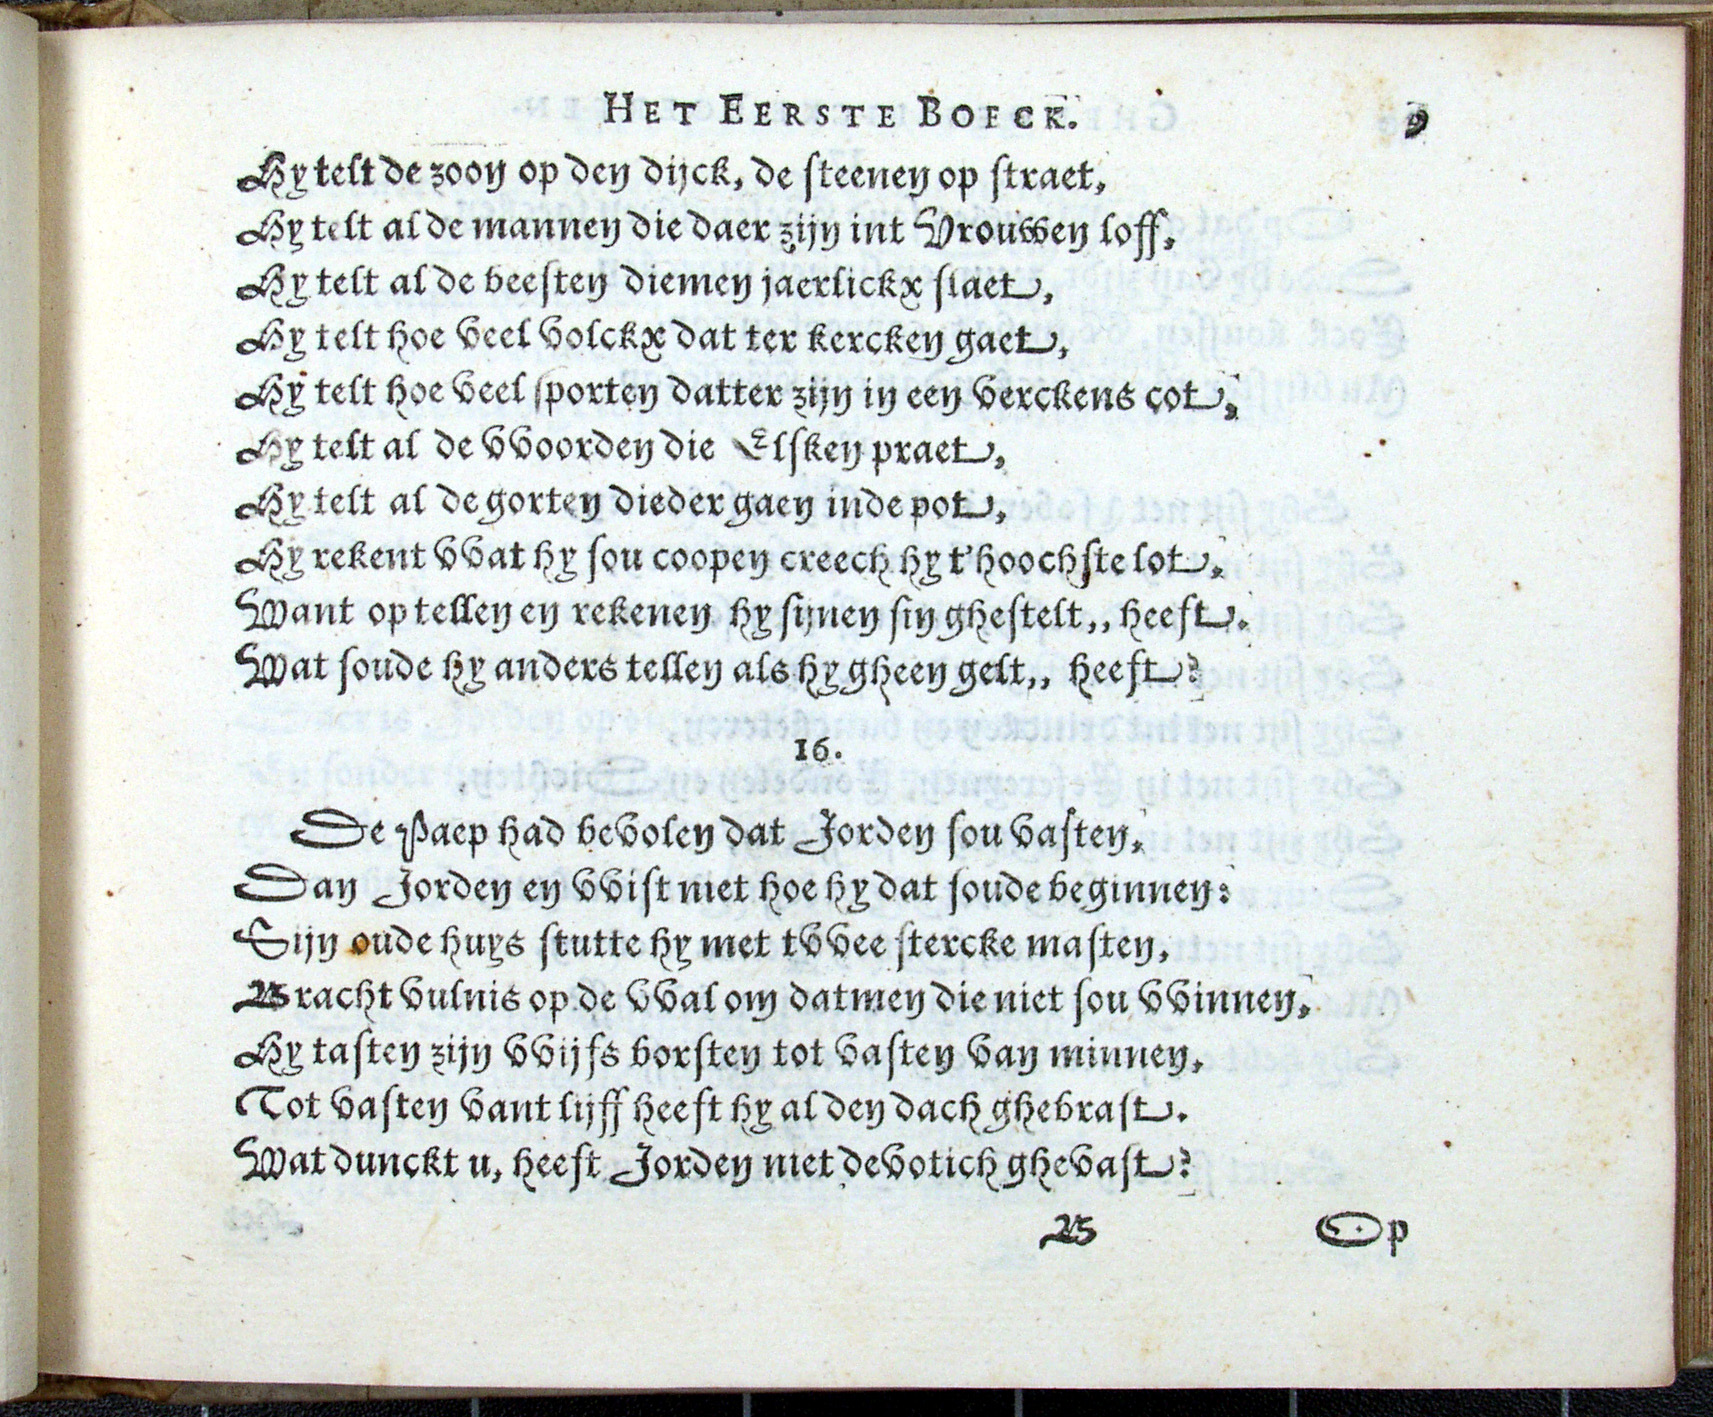 HET EERSTE BOECK. 9
Hy telt de zoon op den dijck, de steenen op straet,
Hy telt al de mannen die daer zijn int Vrouwen loff,
Hy telt al de beesten diemen jaerlickx slaet,
Hy telt hoe veel volckx dat ter kercken gaet,
Hy telt hoe veel sporten datter zijn in een verckens cot,
Hy telt al de vvoorden die Elsken praet,
Hy telt al de gorten dieder gaen inde pot,
Hy rekent vvat hy sou coopen creech hy t'hoochste lot,
Want op tellen en rekenen hy sijnen sin ghestelt,, heeft.
Wat soude hy anders tellen als hy gheen gelt,, heeft?
16.
De Paep had bevolen dat Jorden sou vasten,
Dan Jorden en vvist niet hoe hy dat soude beginnen:
Sijn oude huys stutte hy met tvvee stercke masten,
Bracht vulnis op de vval om datmen die niet sou vvinnen,
Hy tasten zijn vvijfs borsten tot vasten van minnen,
Tot vasten vant lijff heeft hy al den dach ghebrast.
Wat dunckt u, heeft Jorden niet devotich ghevast?
B Op